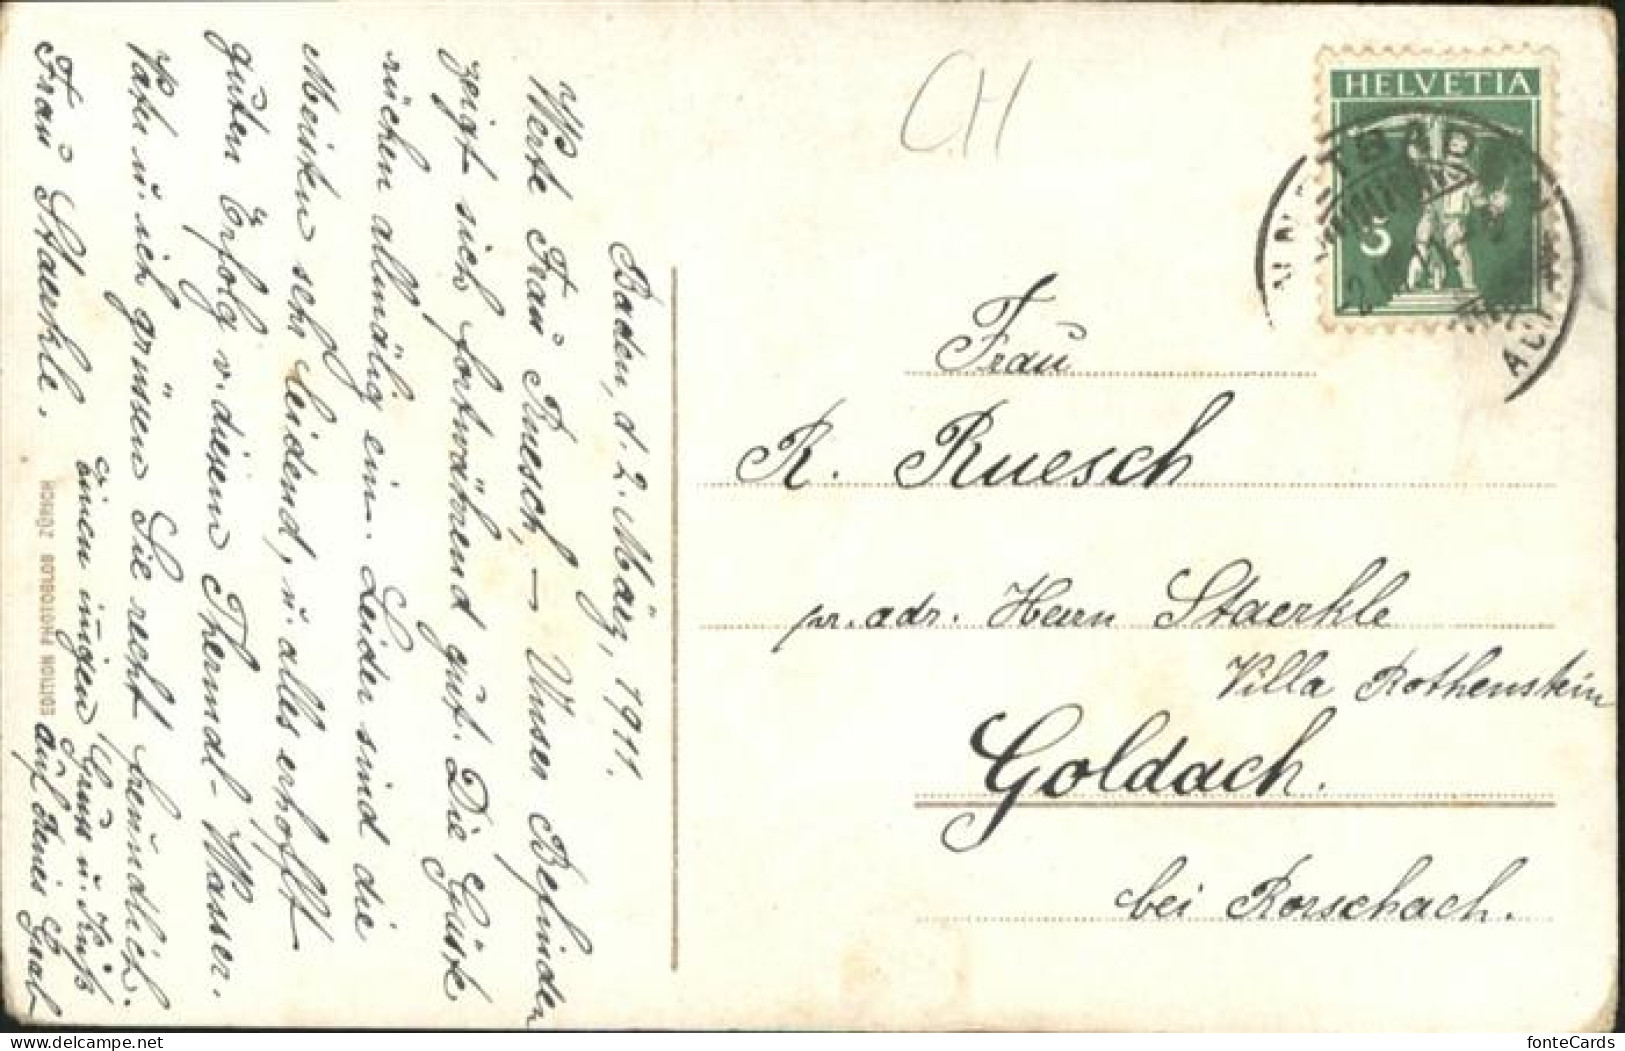 Baden, d. 2. März, 1911.
Werte Frau Ruesch, — Unser Befinden
zeigt sich fortwährend gut. Die Gäste
rücken allmälig ein. Leider sind die
Meisten sehr leidend, u. alles erhofft
guten Erfolg v. diesem Thermal-Wasser.
Vater u. ich grüssen Sie recht freundlich.
Frau Staerkle.
Einen innigen Gruss u. Kuss
auf Grab
EDITION PHOTOGLOB ZÜRICH
CH
HELVETIA
5
Frau
R. Ruesch
pr. adr. Herrn Staerkle
Villa Rothenstein
Goldach.
bei Rorschach.
fonteCards